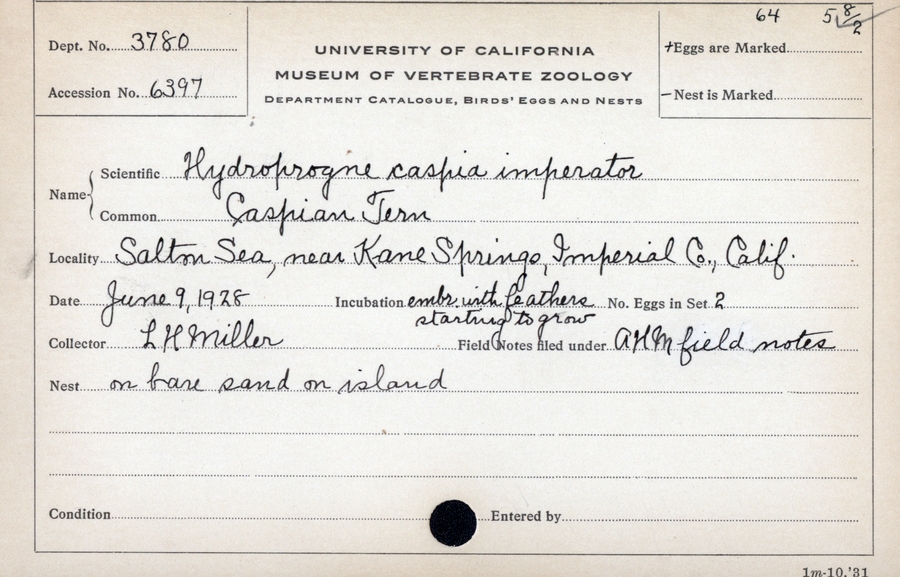 64 5 8/2
Dept. No. 3780
Accession No. 6397
UNIVERSITY OF CALIFORNIA
MUSEUM OF VERTEBRATE ZOOLOGY
DEPARTMENT CATALOGUE, BIRDS' EGGS AND NESTS
+Eggs are Marked
–Nest is Marked
Name Scientific Hydroprogne caspia imperator
Common Caspian Tern
Locality Salton Sea, near Kane Springs, Imperial Co., Calif.
Date June 9, 1928 Incubation embr. with feathers No. Eggs in Set 2
starting to grow
Collector L H Miller Field Notes filed under AHM field notes
Nest on bare sand on island
Condition Entered by
1m-10,'31